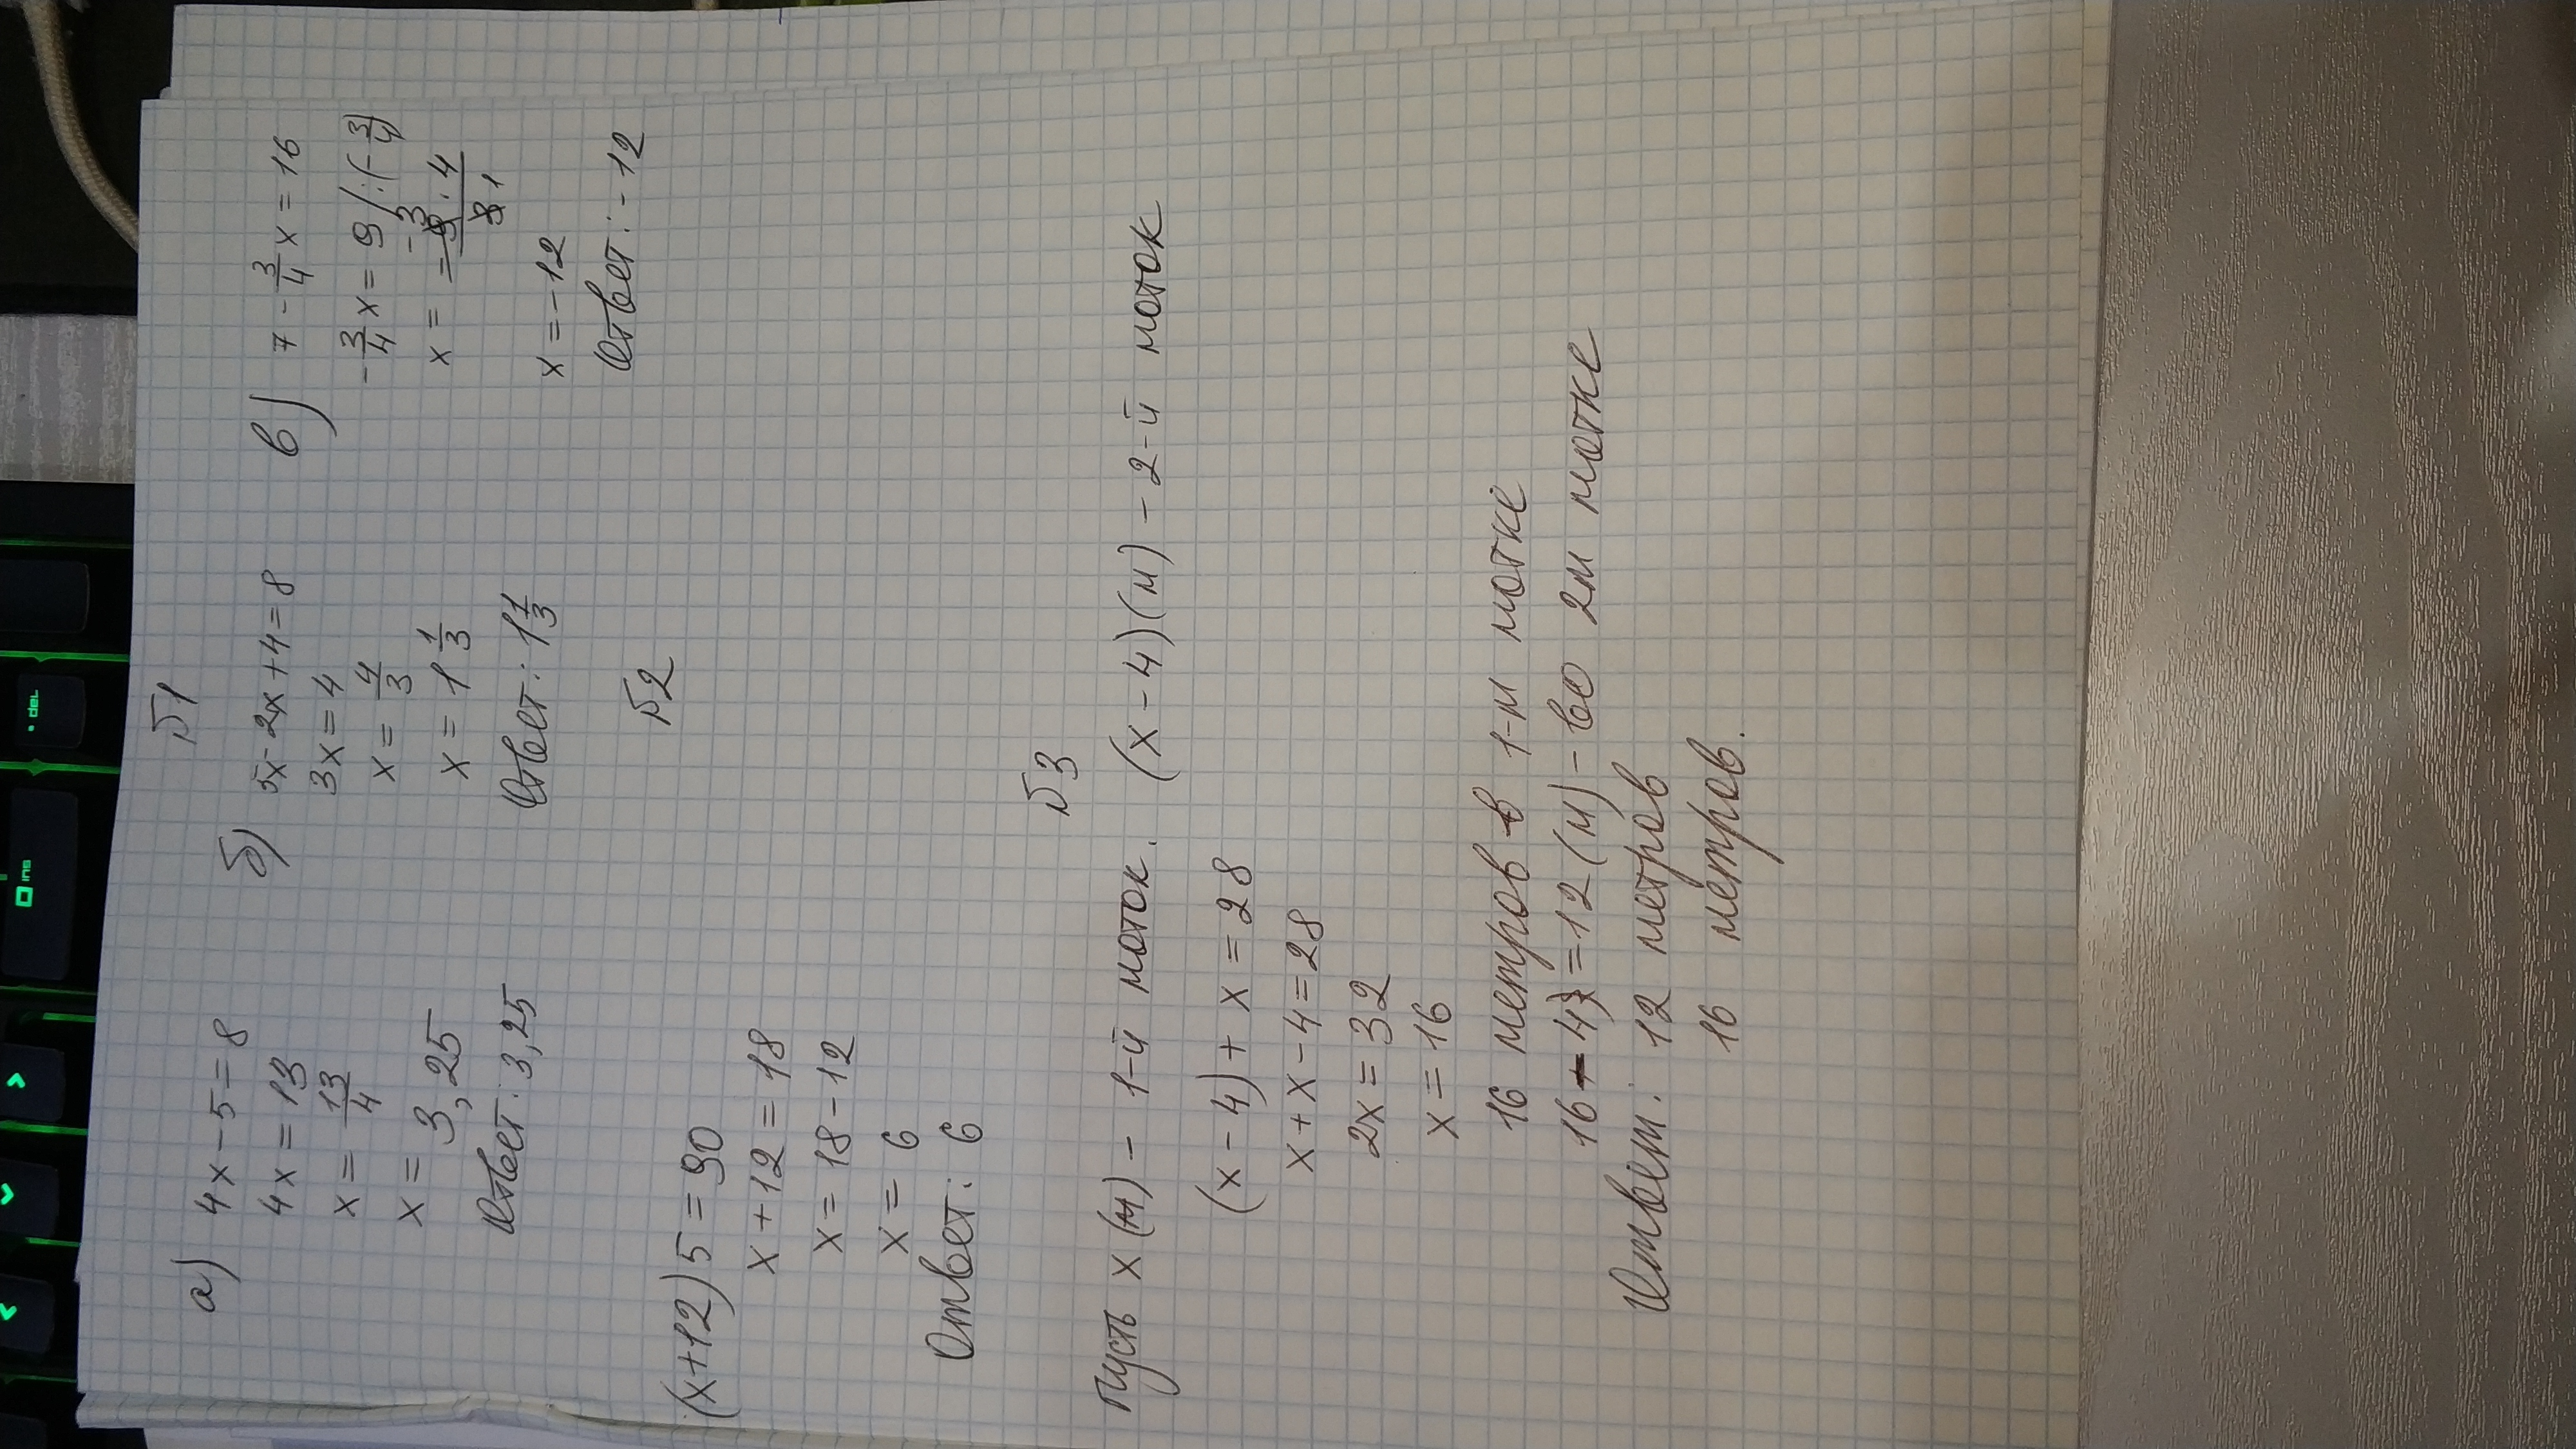 №1
а) 4x - 5 = 8
4x = 13
x = 13/4
x = 3,25
Ответ: 3,25
б) 5x - 2x + 4 = 8
3x = 4
x = 4/3
x = 1 1/3
Ответ: 1 1/3
в) 7 - 3/4 x = 16
- 3/4 x = 9 / : (- 3/4)
x = - 9 · 4 / 3
-3 1
x = -12
Ответ: -12
№2
(x+12) 5 = 90
x + 12 = 18
x = 18 - 12
x = 6
Ответ: 6
№3
Пусть x (м) - 1-й моток. (x - 4) (м) - 2-й моток
(x - 4) + x = 28
x + x - 4 = 28
2x = 32
x = 16
16 метров в 1-м мотке
16 - 4 = 12 (м) - во 2м мотке
Ответ: 12 метров
16 метров.
ins
del